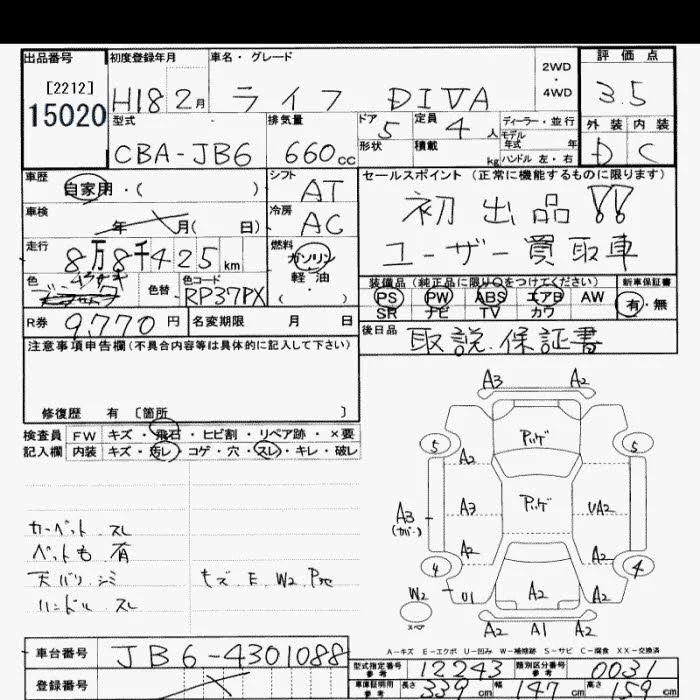 出品番号 初度登録年月 車名・グレード 評価点
[2212]
15020
H18 2月 ライフ DIVA 2WD・4WD 3.5
型式 排気量 ドア 定員 ディーラー・並行 外装 内装
CBA-JB6 660cc 5 4人 モデル年式 年 D C
形状 積載 kg ハンドル 左・右
車歴 シフト セールスポイント (正常に機能するものに限ります)
自家用・( ) AT 初出品!!
車検 年 月( 日) 冷房 AC ユーザー買取車
走行 8万8千425km 燃料 ガソリン・軽油・( )
色 色替 色コード RP37PX
装備品(純正品に限り○をつけてください) 新車保証書
PS PW ABS エアB AW 有・無
SR ナビ TV カワ
R券 9,770円 名変期限 月 日 後日品 取説.保証書
注意事項申告欄(不具合内容等は具体的に記入して下さい)
修復歴 有 〔箇所 〕
検査員 FW キズ・飛石・ヒビ割・リペア跡・×要
記入欄 内装 キズ・汚レ・コゲ・穴・スレ・キレ・破レ
カーペット スレ
ペット毛 有
天バリ シミ キズ.E.W2
ハンドル スレ
A3 A2
5 5
A2
A3 A3 UA2
(カバー)
A2 A2
4 4
W2 U1 A2 A2
A2 A1 A2
A-キズ E-エクボ U-凹み W-補修跡 S-サビ C-腐食 XX-交換済
車台番号 JB6-4301088
型式指定番号 参考 12243 類別区分番号 参考 0031
登録番号
車庫証明用 参考 長さ 339cm 幅 147cm 高さ 159cm